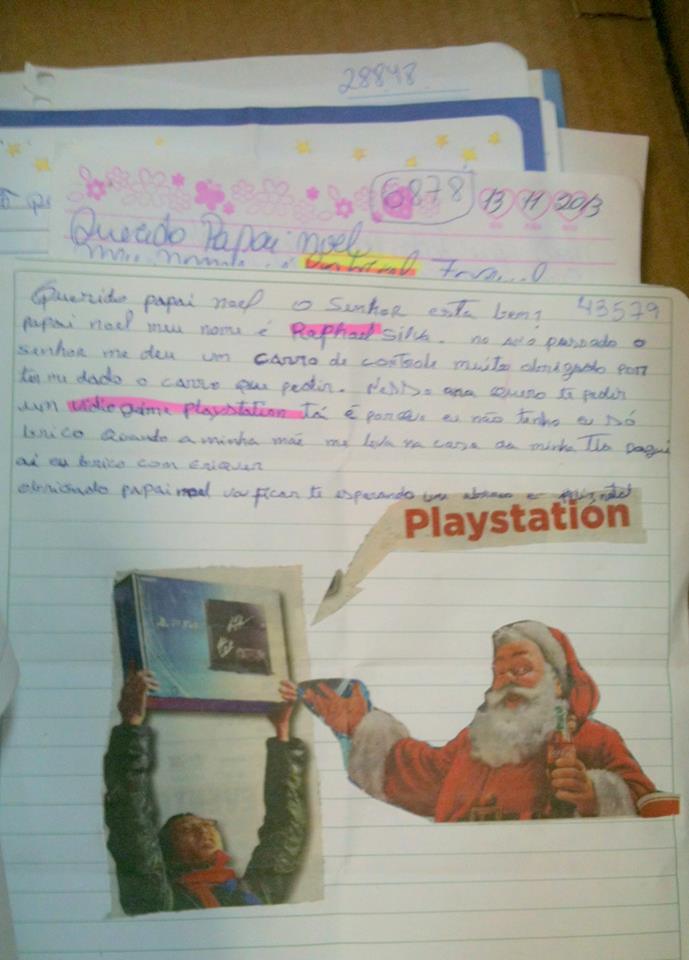 28848
6878 13 11 2013
Querido Papai noel
43579
Querido papai noel o Senhor esta bem?
papai noel meu nome é Raphael Silva. no ano passado o
senhor me deu um carro de controle muito obrigado por
ter me dado o carro que pedir. Nesse ano quero te pedir
um vidio game playstation tá é porque eu não tenho eu só
brico quando a minha mãe me leva na casa da minha Tia
ai eu brico com
obrigado papai noel vou ficar te esperando um abraço e feliz natal
Playstation